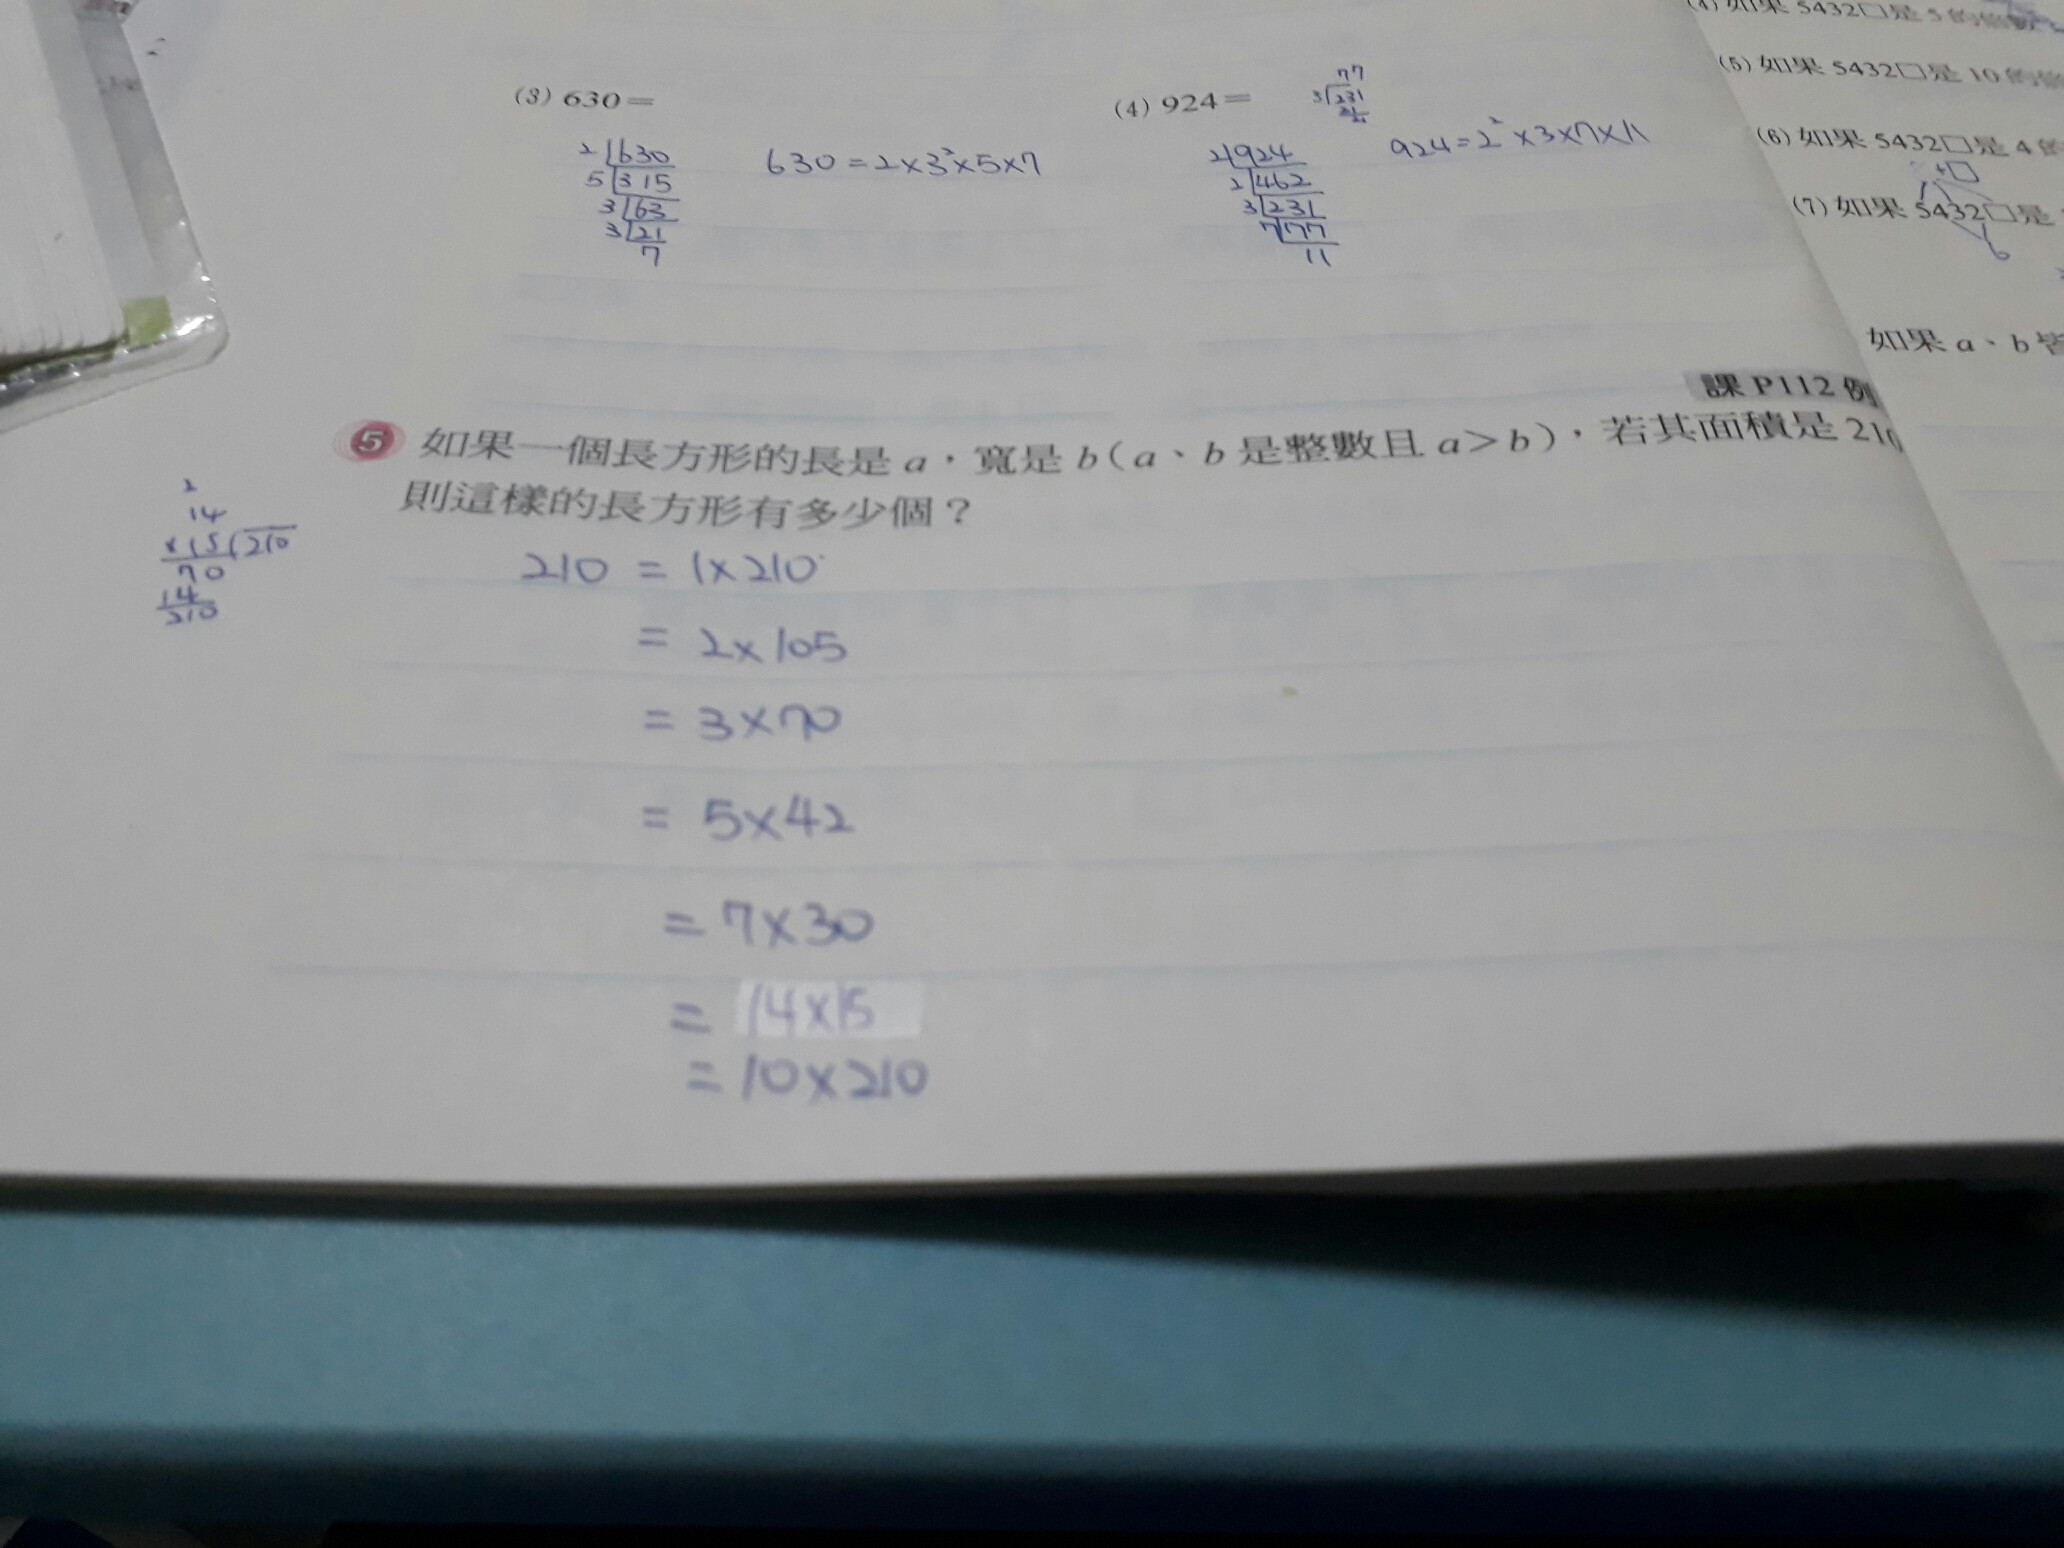 (3) 630=
2 630
5 315
3 63
3 21
7
630=2×3²×5×7
(4) 924=
77
3 231
21
21
2 924
2 462
3 231
7 77
11
924=2²×3×7×11
課 P112 例
5 如果一個長方形的長是 a,寬是 b(a、b 是整數且 a>b),若其面積是 210
則這樣的長方形有多少個?
2
14
×15 210
70
14
210
210 = 1×210
= 2×105
= 3×70
= 5×42
= 7×30
= 14×15
= 10×210
(4) 如果 5432□是 5 的倍數
(5) 如果 5432□是 10 的倍
(6) 如果 5432□是 4 的
(7) 如果 5432□是
6
如果 a、b 皆